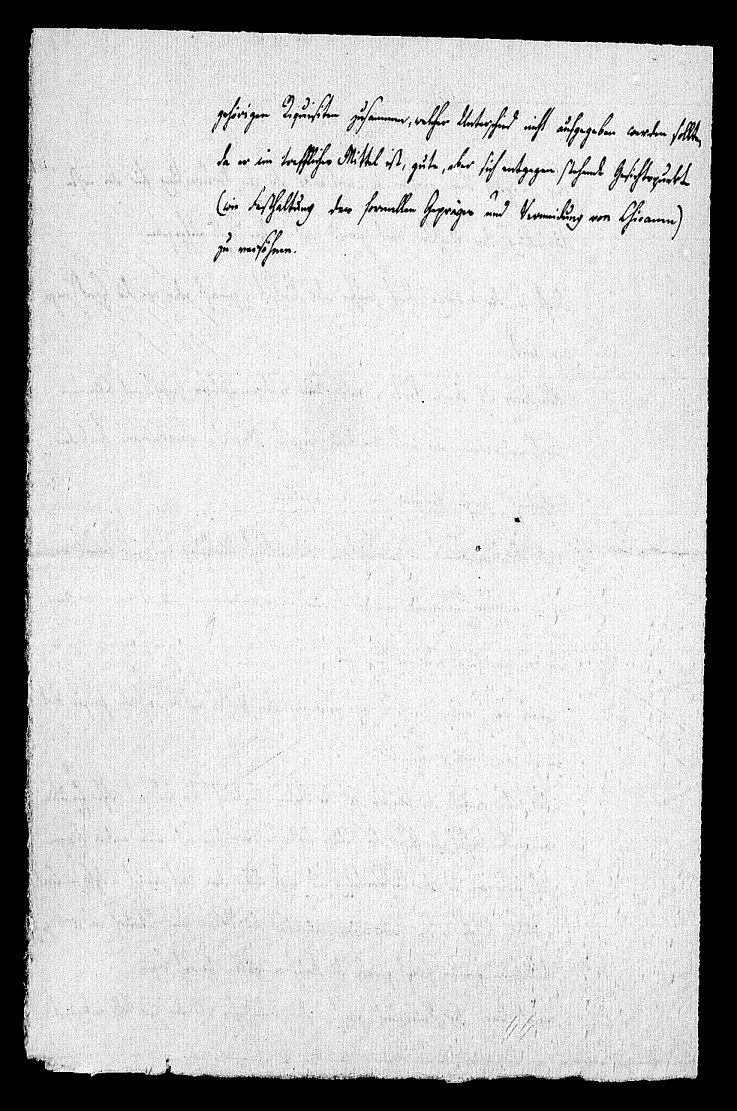 gehörigen Requisiten zusammen, welcher Unterschied nicht aufgegeben werden sollte,
da er ein treffliches Mittel ist, gute, aber sich entgegen stehende Gesichtspunkte
(wie Festhaltung des formellen Gepräges und Vermeidung von Chicanen)
zu versöhnen.